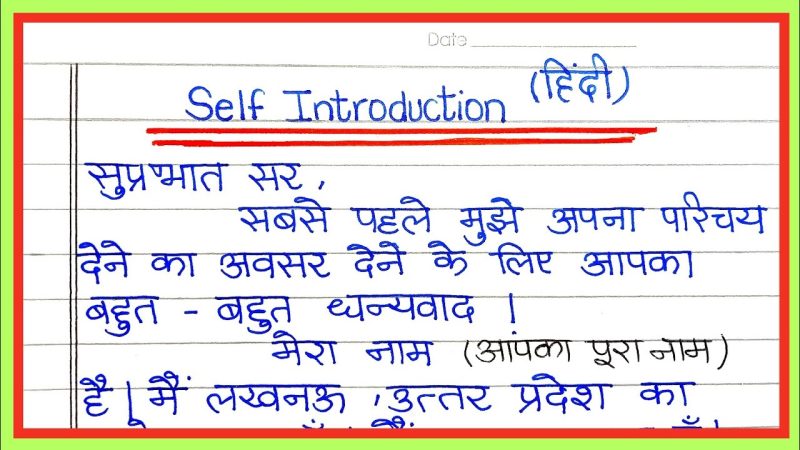 Date
Self Introduction (हिंदी)
सुप्रभात सर,
सबसे पहले मुझे अपना परिचय
देने का अवसर देने के लिए आपका
बहुत - बहुत धन्यवाद !
मेरा नाम (आपका पूरा नाम)
है। मैं लखनऊ, उत्तर प्रदेश का